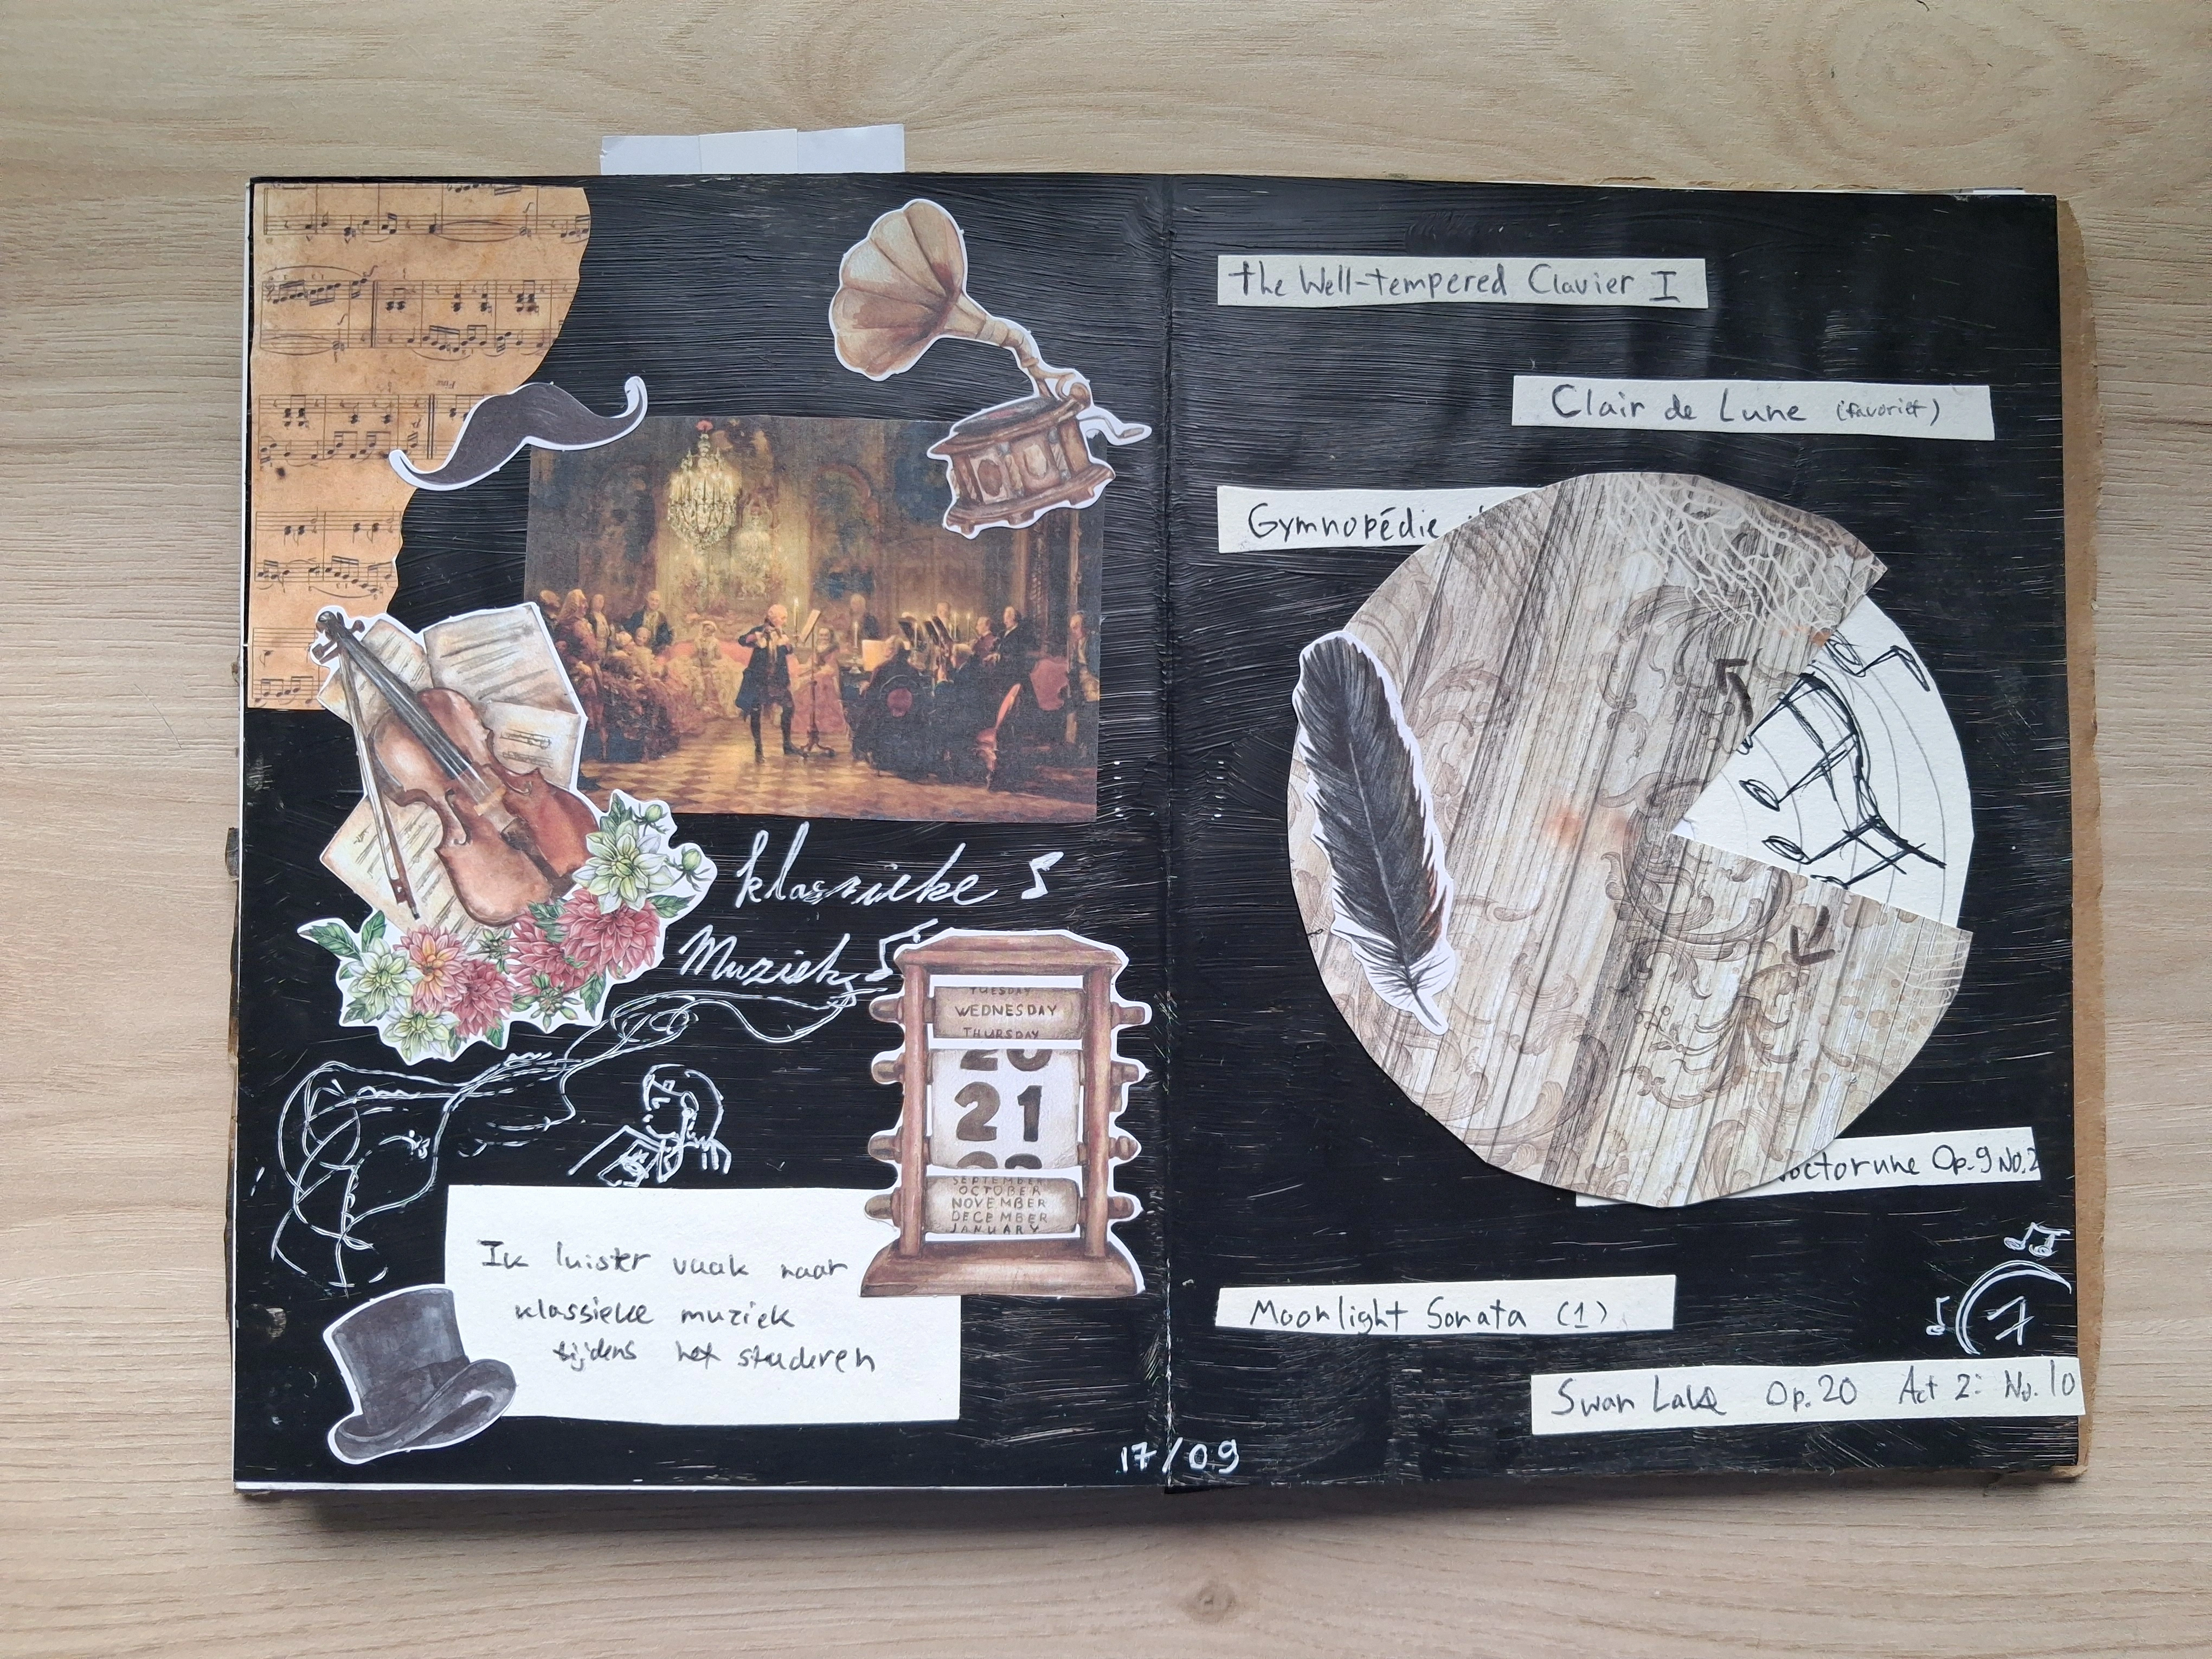 klassieke
Muziek
TUESDAY
WEDNESDAY
THURSDAY
20
21
22
SEPTEMBER
OCTOBER
NOVEMBER
DECEMBER
JANUARY
Ik luister vaak naar
klassieke muziek
tijdens het studeren
17/09
the Well-tempered Clavier I
Clair de Lune (favoriet)
Gymnopédie
octorune Op.9 No.2
Moonlight Sonata (1)
7
Swan Lake Op.20 Act 2: No.10